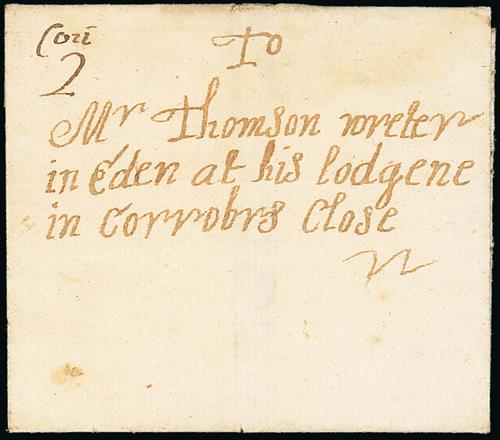 Cori
To
2
Mr Thomson wreter
in Eden at his lodgene
in Corrobrs Close